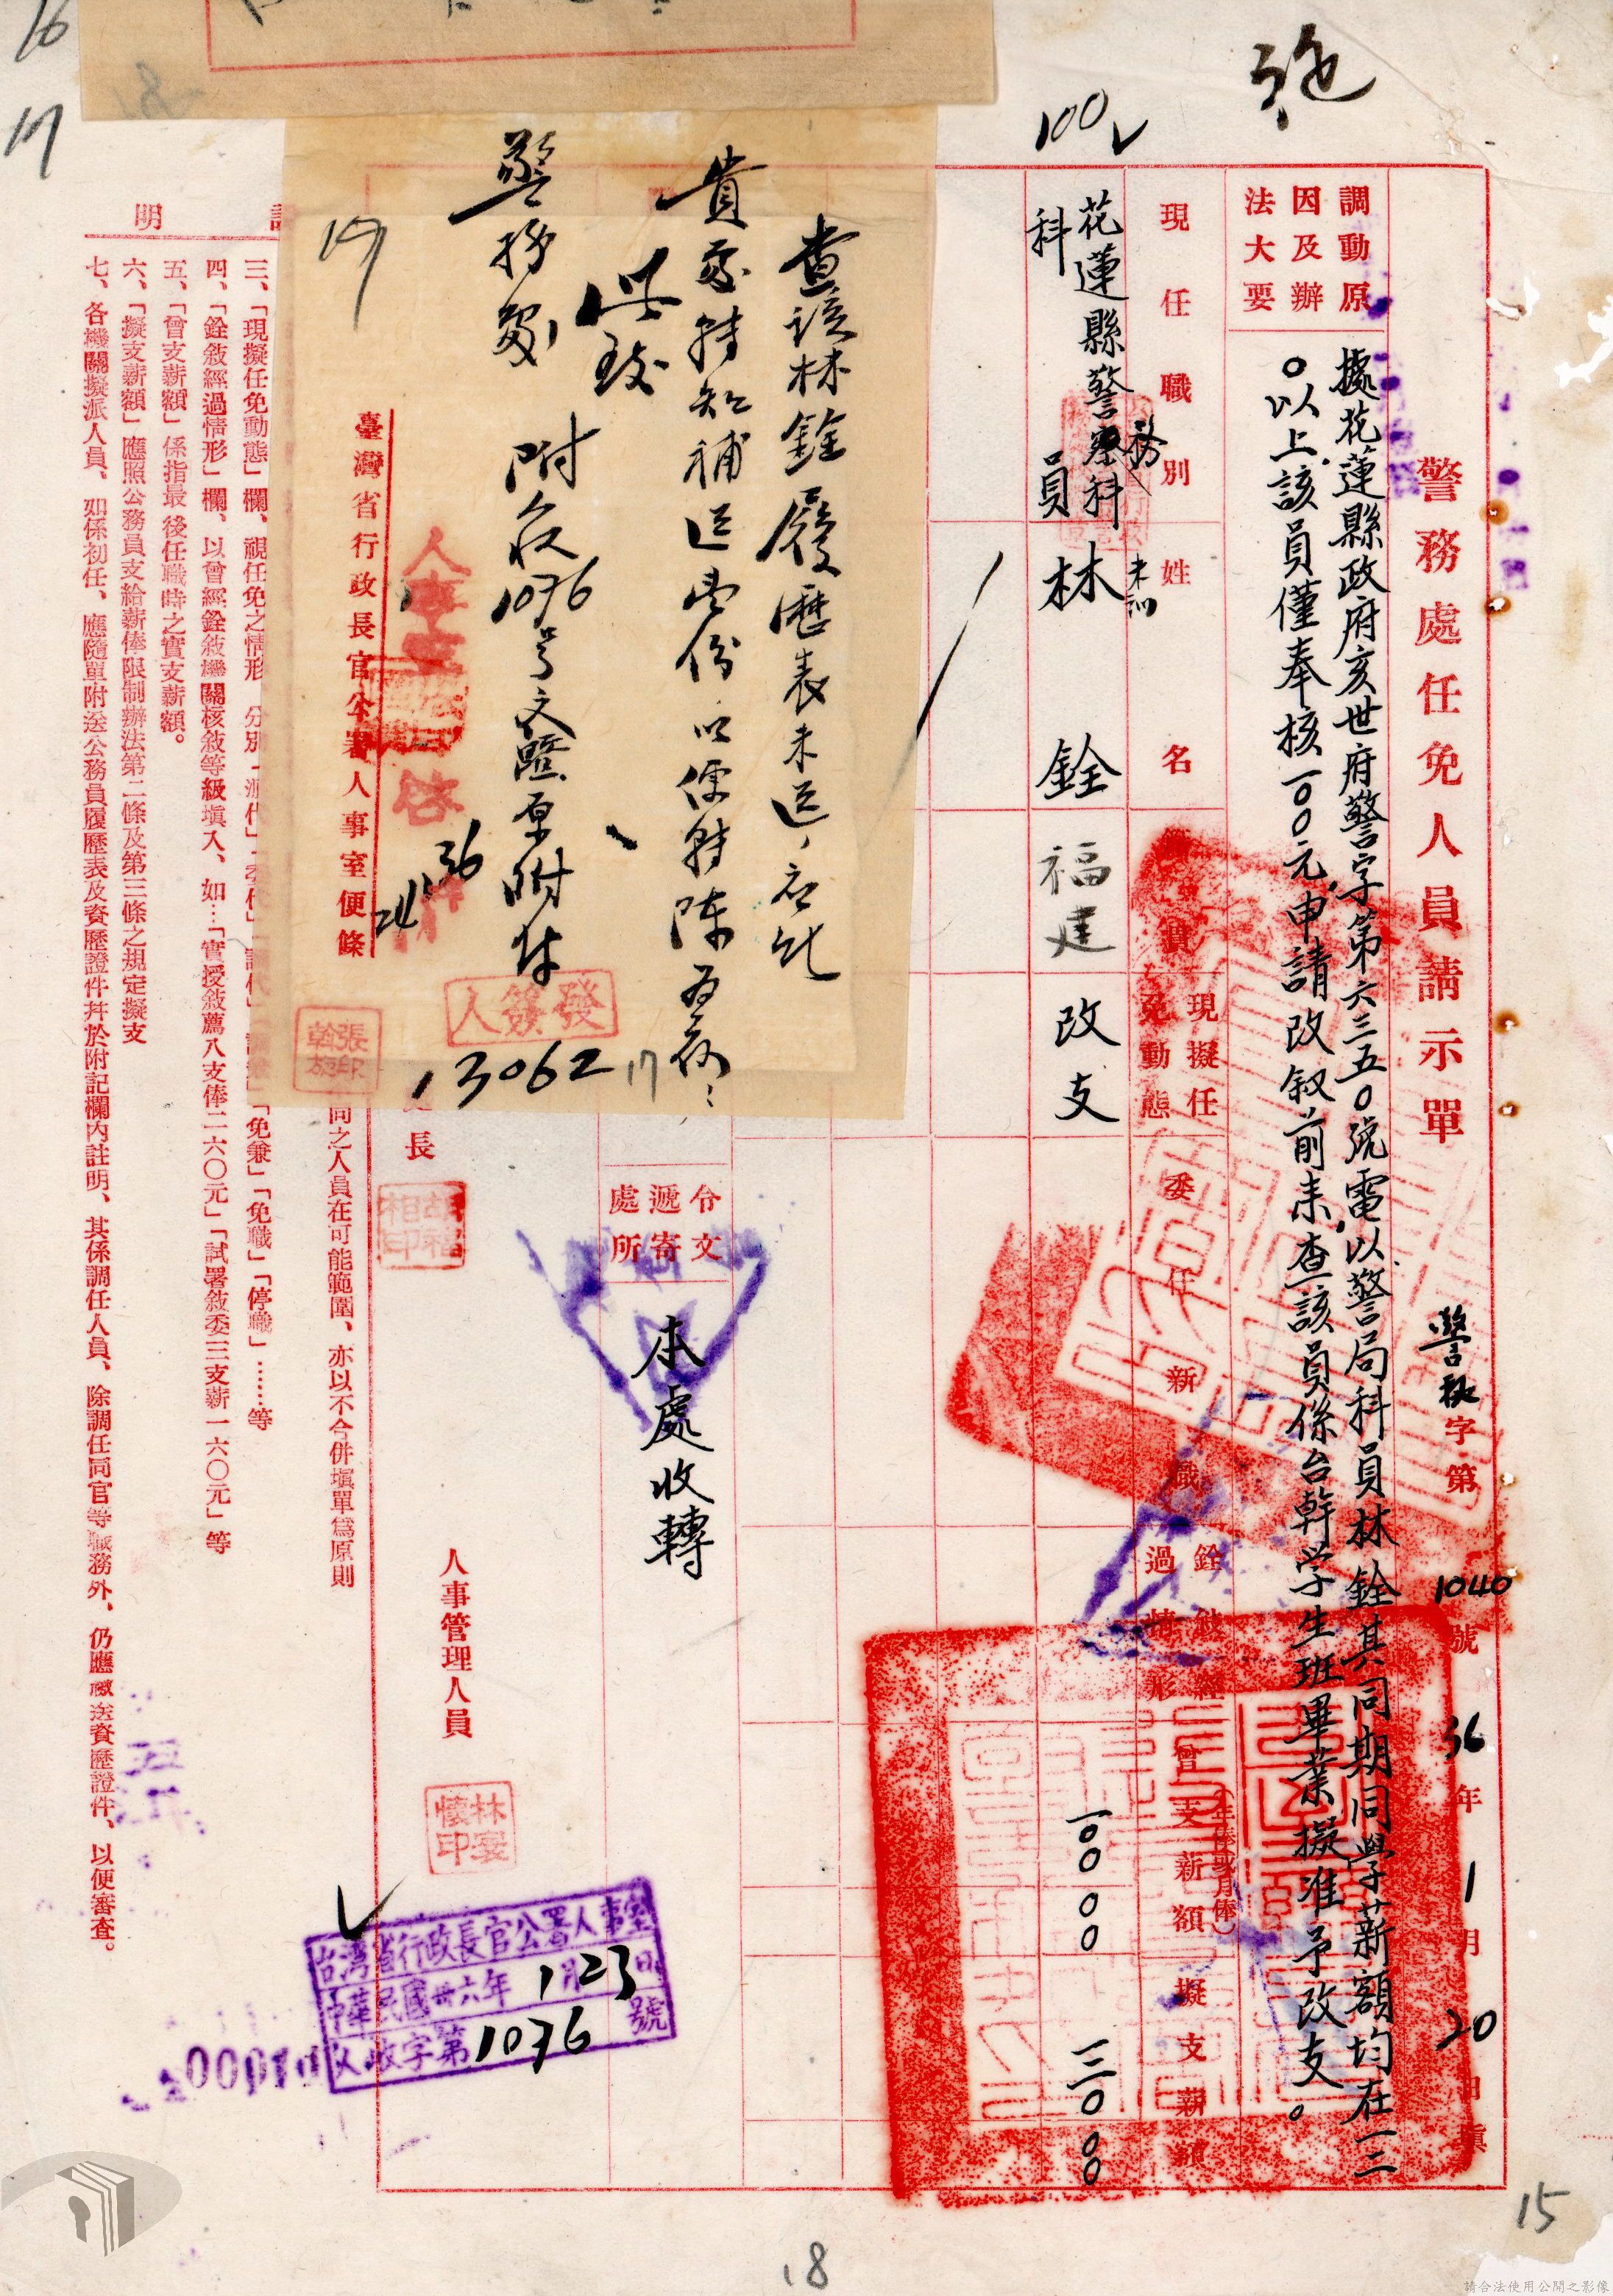 警務處任免人員請示單
警秘字第1040號 36年1月20日填
調動原因及辦法大要
據花蓮縣政府亥世府警字第六三五0號電以警局科員林銓其同期同學薪額均在一三
0以上該員僅奉核一00元申請改敘前來查該員係台幹学生班畢業擬准予改支。
現任職別
姓名
籍貫
現擬任免動態
委任新職
銓敘經過情形
曾支薪額
(年俸或月俸)
擬支薪額
花蓮縣警務科
科員
林銓
未訓
福建
改支
一00 00
一三0 00
100
令文遞寄處所
本處收轉
處長
人事管理人員
林宴懷印
查該林銓履歷表未送,
貴處轉知補送壹份,以便轉陳為荷
此致
警務處
附人收1076号文暨原附件
臺灣省行政長官公署人事室便條
人事室 啓
36
發簽人
13062
17
張印
說明
三、「現擬任免動態」欄、視任免之情形
四、「銓敘經過情形」欄、以曾經銓敘機關核敘等級填入、如…「實授敘薦八支俸二六〇元」「試署敘委三支薪一六〇元」等
五、「曾支薪額」係指最後任職時之實支薪額。
六、「擬支薪額」應照公務員支給薪俸限制辦法第二條及第三條之規定擬支
七、各機關擬派人員、如係初任、應隨單附送公務員履歷表及資歷證件并於附記欄內註明、其係調任人員、除調任同官等職務外、仍應檢送資歷證件、以便審查。
「免兼」「免職」「停職」……等
同之人員在可能範圍、亦以不令併填單為原則
台灣省行政長官公署人事室
中華民國卅六年1月23日
人收字第1076號
16
17
17
18
15
18
請合法使用公開之影像